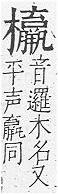 音邏木名又
平声同